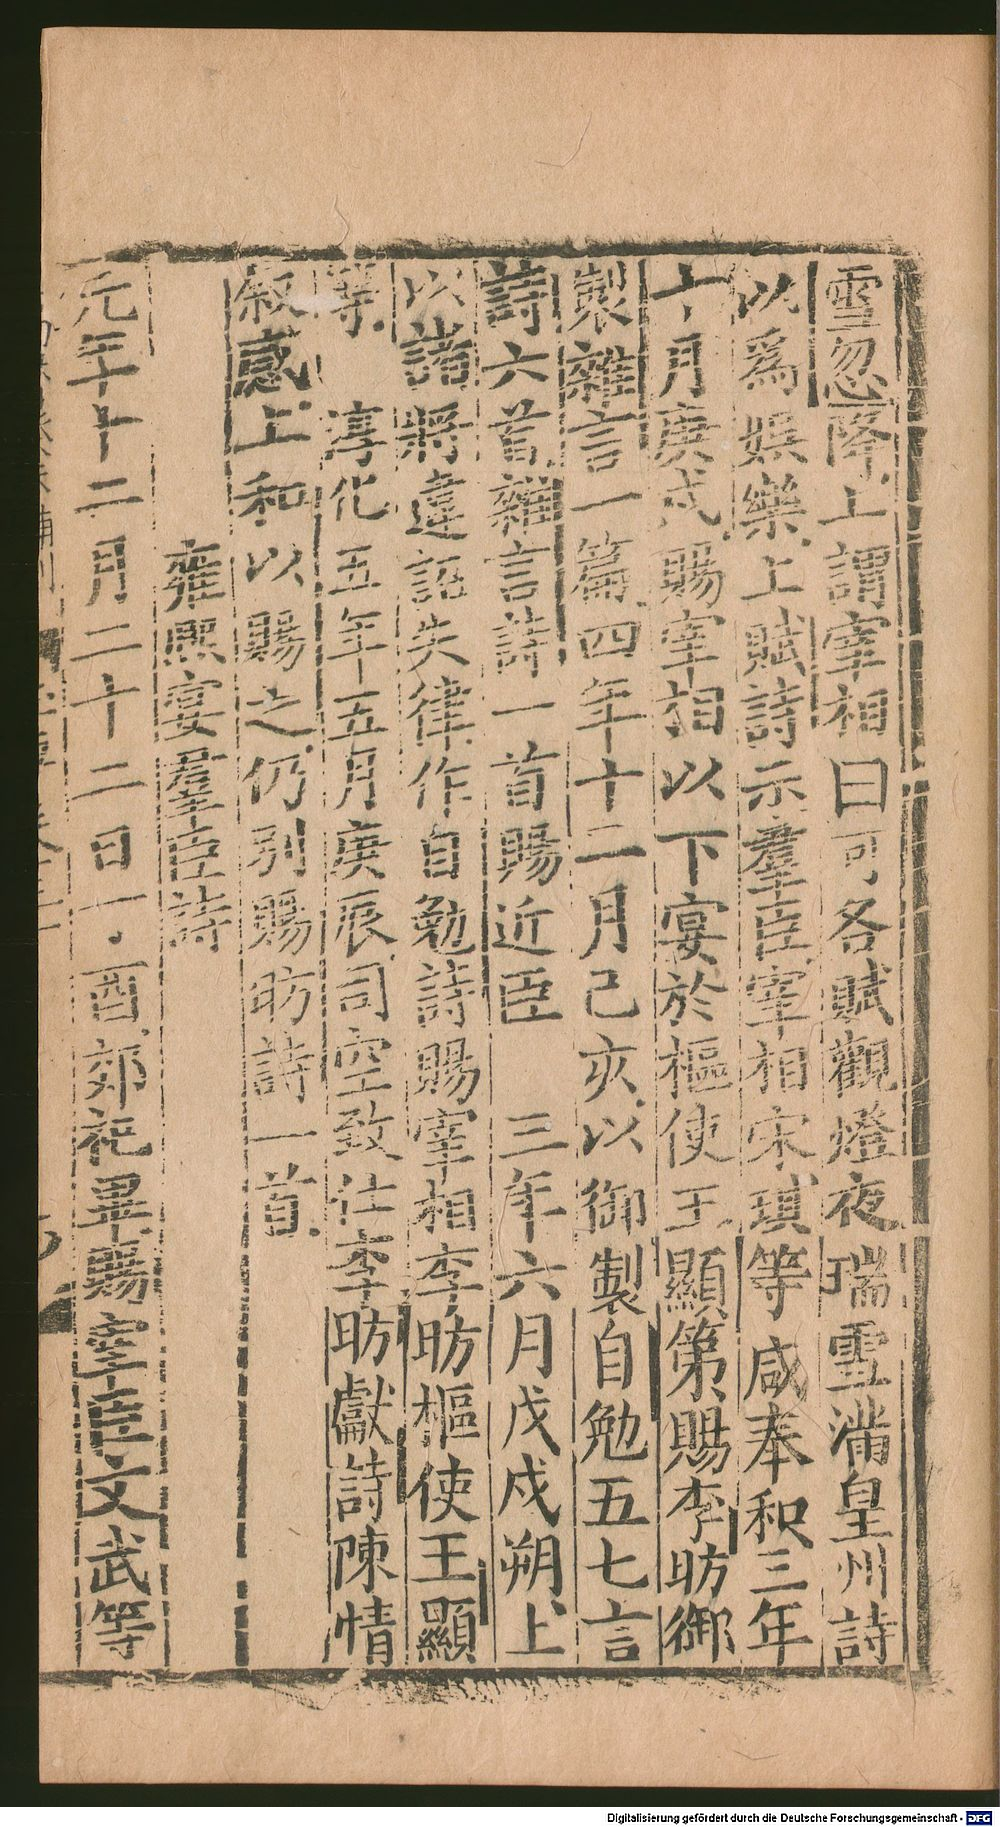 雪忽降上謂宰相曰可各賦觀燈夜瑞雪滿皇州詩
以爲娛樂上賦詩示羣臣宰相宋琪等咸奉和三年
十月庚戌賜宰相以下宴於樞使王顯第賜李昉御
製雜言一篇四年十二月己亥以御製自勉五七言
詩六首雜言詩一首賜近臣 三年六月戊戌朔上
以諸將違詔失律作自勉詩賜宰相李昉樞使王顯
等 淳化五年五月庚辰司空致仕李昉獻詩陳情
叙感上和以賜之仍別賜昉詩一首
雍熙宴羣臣詩
元年十二月二十二日丁酉郊祀畢賜宰臣文武等
Digitalisierung gefördert durch die Deutsche Forschungsgemeinschaft - DFG